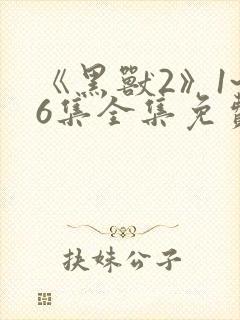 《黑獸2》1-
6集全集免費
扶妹公子